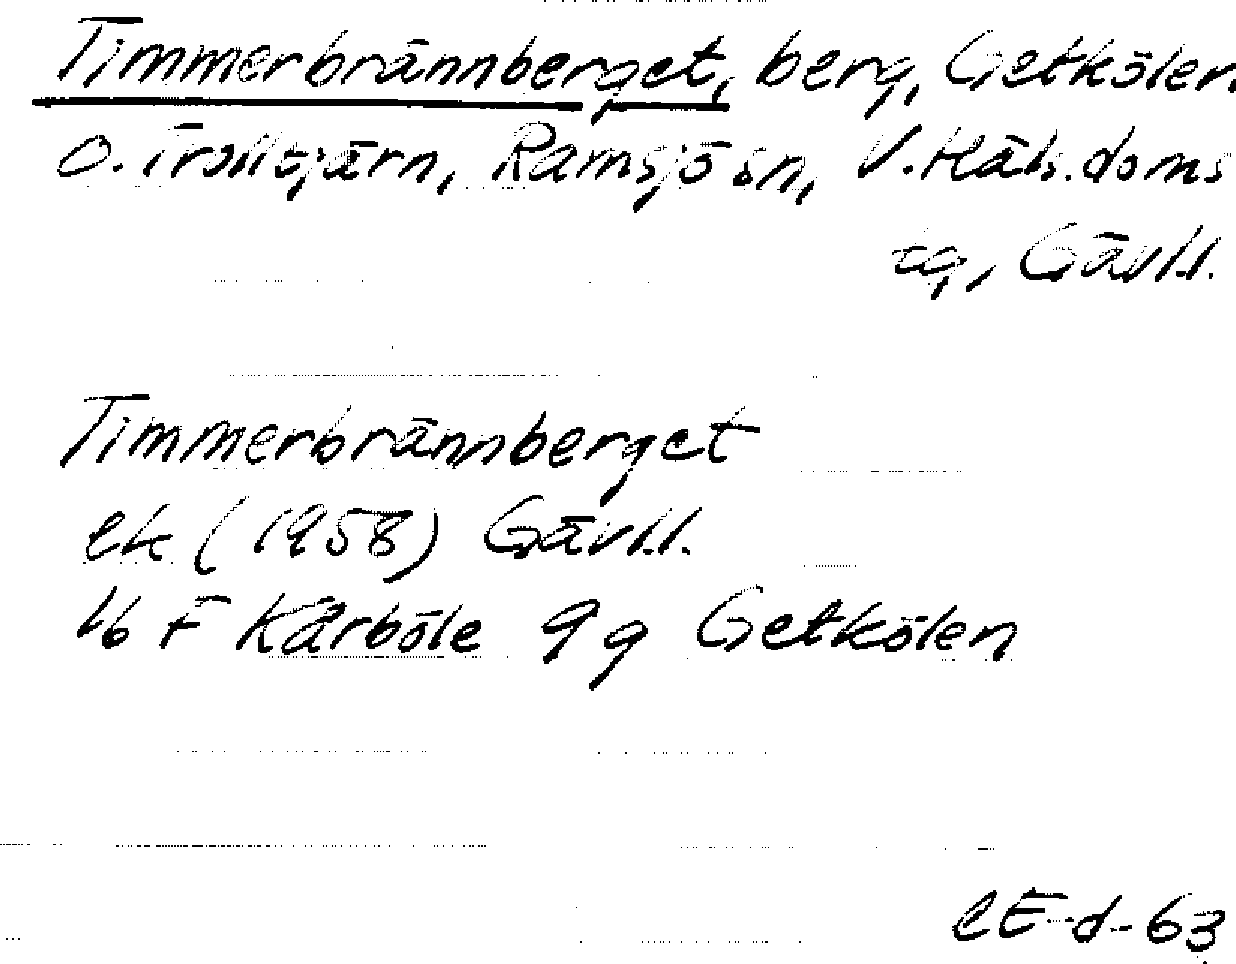 Timmerbrännberget, berg, Getkölen
o. Trolltjärn, Ramsjö sn, V. Häls. doms
ag, Gävl.l.
Timmerbrännberget
ek (1958) Gävl.l.
16 F Kårböle 9 g Getkölen
CE-d-63